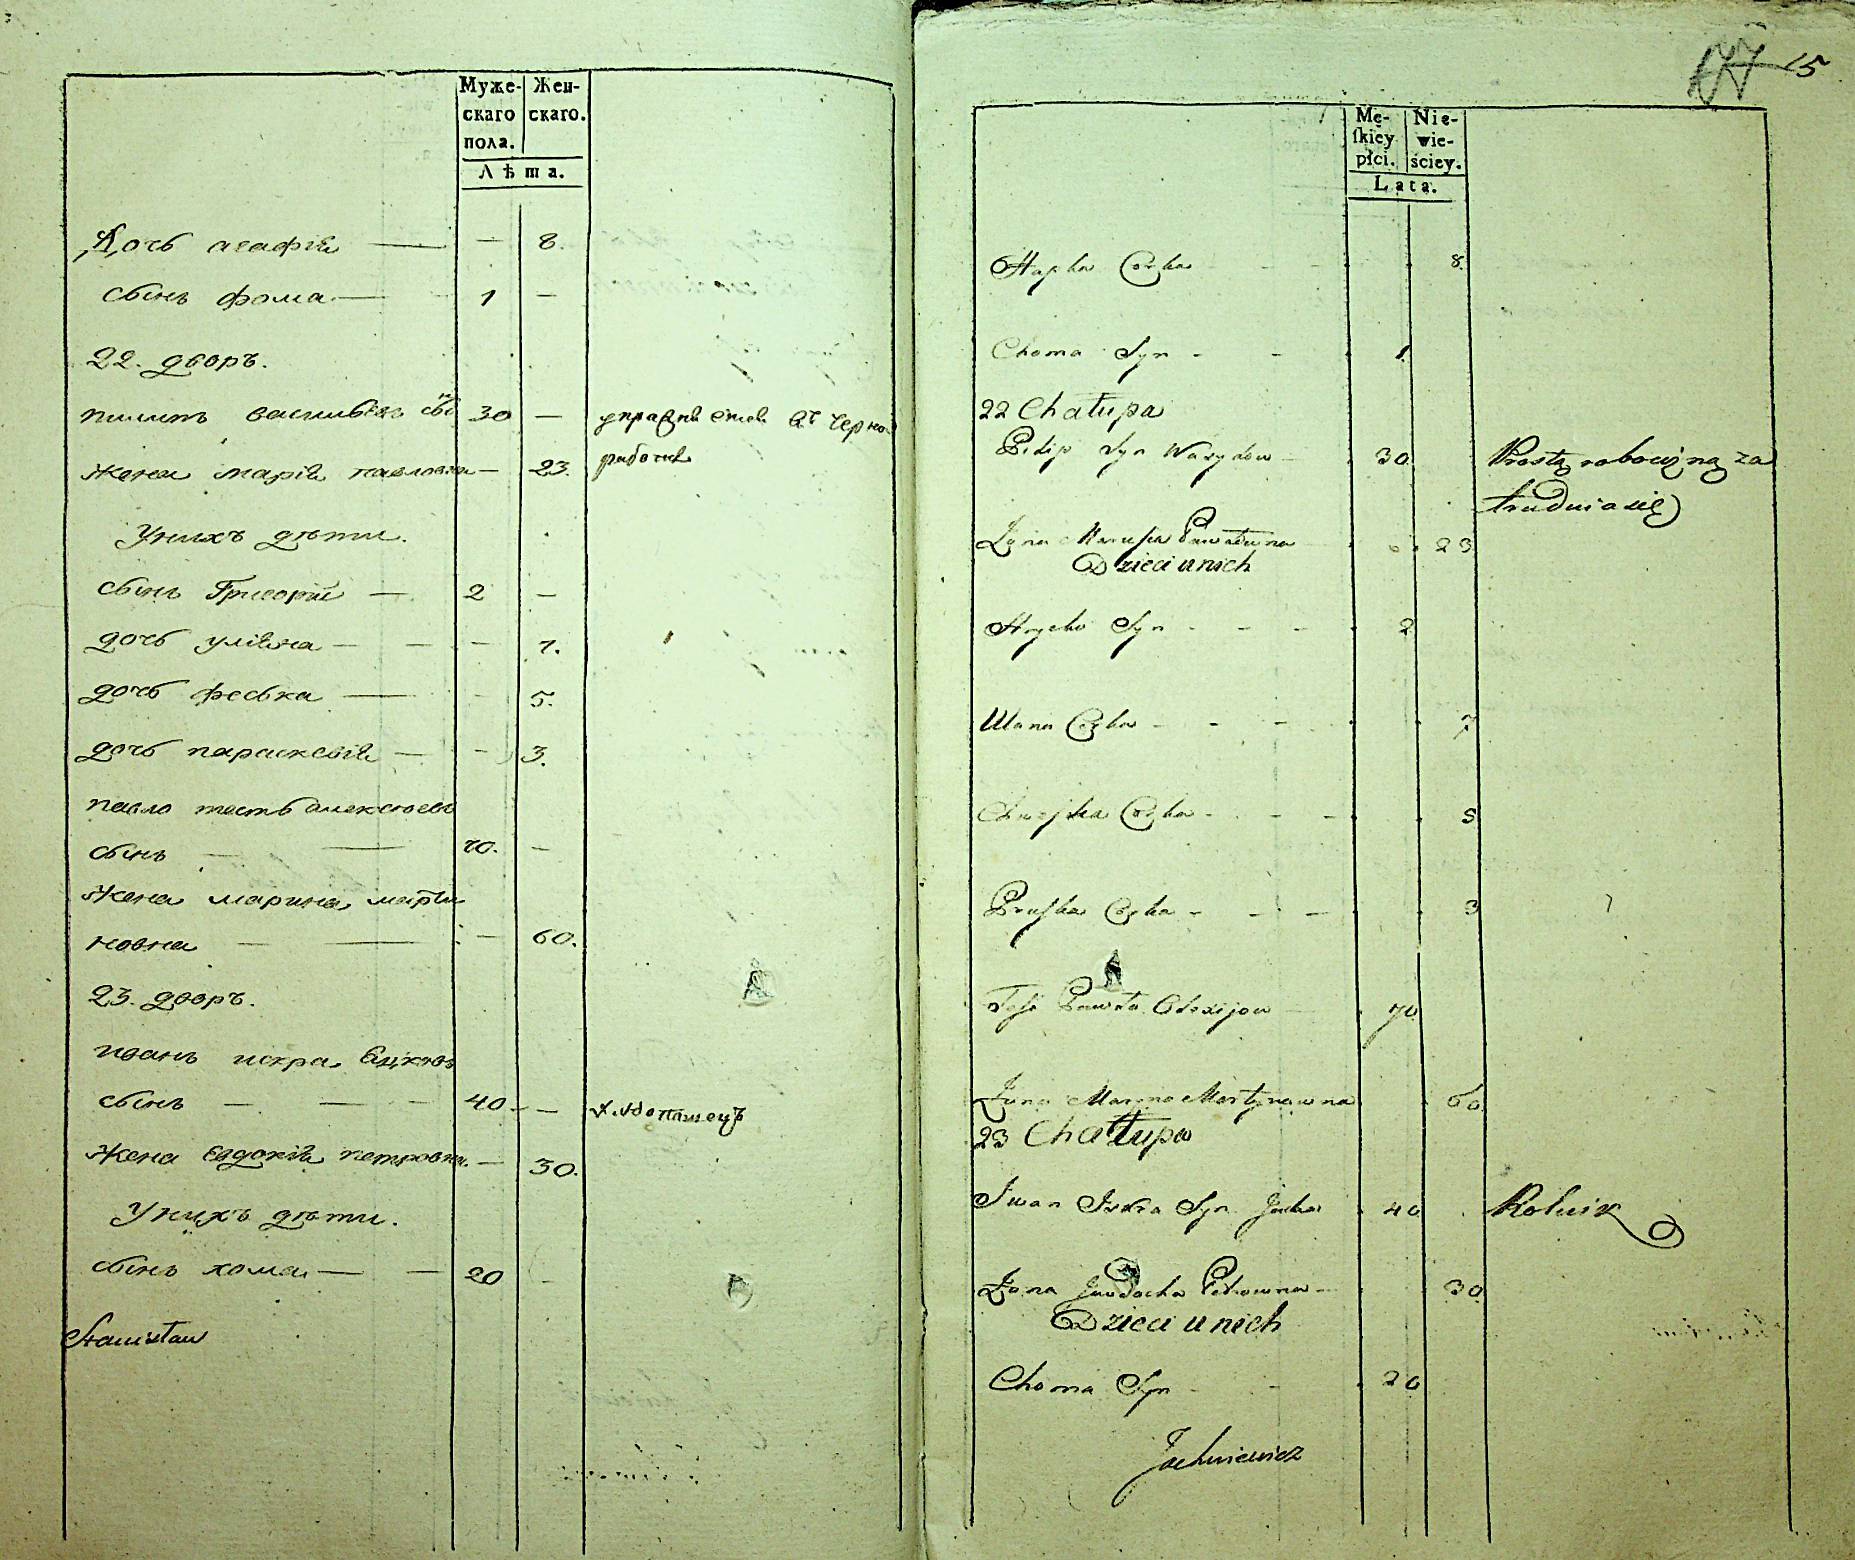 Муже-
скаго
пола.
Жен-
скаго.
Лѣта.
Дочь агафія — — 8.
сынъ фома — 1 —
22. дворъ.
пилипъ васильевъ сынъ 30 — упражняется въ черной
жена марія павловна — 23. работѣ
У нихъ дѣти.
сынъ Григорій — 2 —
дочь уліяна — — 7.
дочь феська — — 5.
дочь параскевія — — 3.
павло тесть алексѣевъ
сынъ — — 70. —
жена марина марти
новна — — — 60.
23. дворъ.
иванъ искра яцковъ
сынъ — — — 40 — хлѣбопашецъ
жена евдокія петровна — 30.
У нихъ дѣти.
сынъ хома — — 20 —
Stanisław
15
Mę-
skiey
płci.
Nie-
wie-
ściey.
Lata.
Hapka Corka 8.
Choma Syn 1.
22 Chałupa
Pilip Syn Wasylow 30 Prostą robocizną za
trudnia się
Żona Marusia Pawałuna 23
Dzieci u nich
Hrycko Syn 2
Ulana Corka 7
Corka 5
Pruska Corka 3
Teść Pawło Olexijow 70
Żona Maryna Martynowna 60
23 Chałupa
Iwan Iskra Syn Jacka 40 Rolnik
Żona Jawdocha Petrowna 30
Dzieci u nich
Choma Syn 20
Jachniewicz